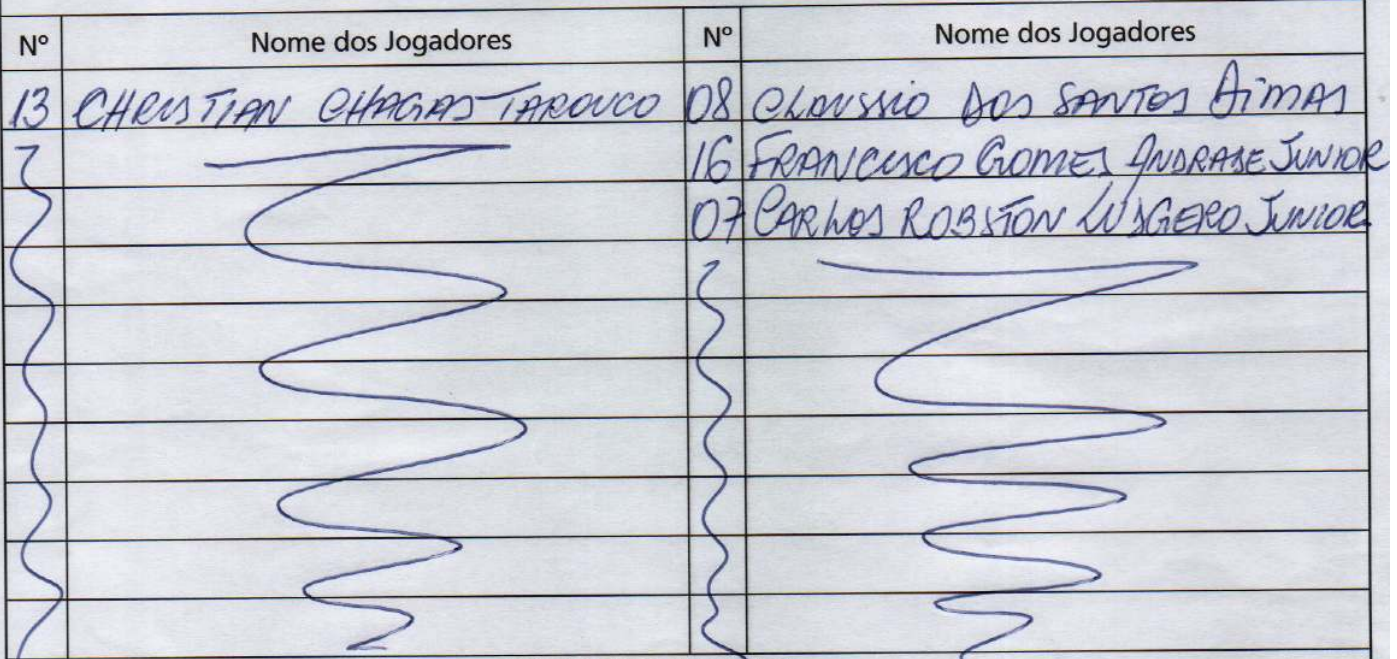 Nº Nome dos Jogadores Nº Nome dos Jogadores
13 CHRISTIAN CHAGAS TAROUCO 08 CLAUSSIO DOS SANTOS DIMAS
16 FRANCISCO GOMES ANDRADE JUNIOR
07 CARLOS ROBSTON JUNIOR